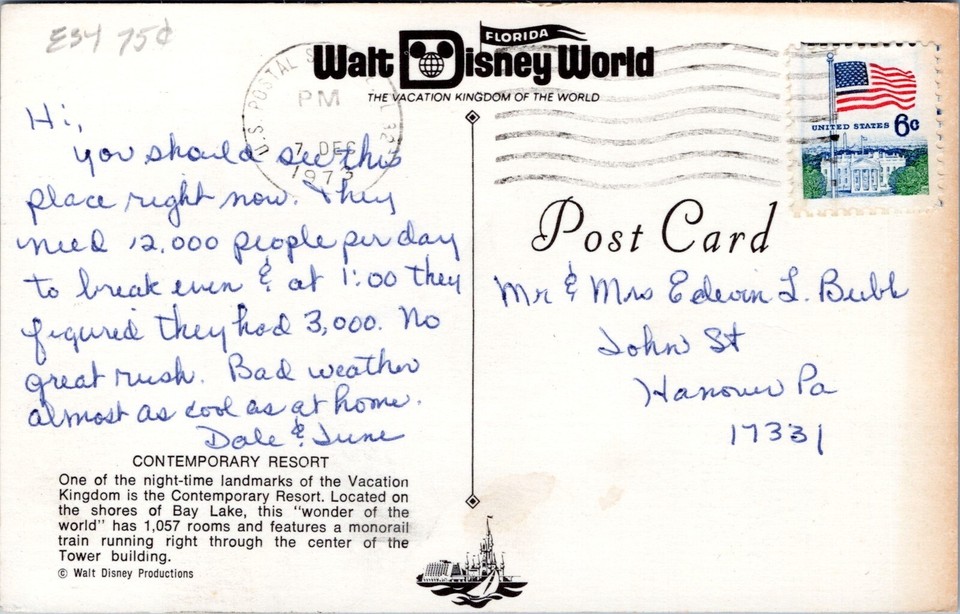 E34 75¢
FLORIDA
Walt Disney World
THE VACATION KINGDOM OF THE WORLD
U.S. POSTAL
PM
7 DEC
1973
UNITED STATES 6c
Post Card
Hi,
you should see this
place right now. They
need 12,000 people per day
to break even & at 1:00 they
figured they had 3,000. No
great rush. Bad weather
almost as cool as at home.
Dale & June
Mr & Mrs Edwin L. Bubb
John St
Hanover Pa
17331
CONTEMPORARY RESORT
One of the night-time landmarks of the Vacation
Kingdom is the Contemporary Resort. Located on
the shores of Bay Lake, this "wonder of the
world" has 1,057 rooms and features a monorail
train running right through the center of the
Tower building.
© Walt Disney Productions